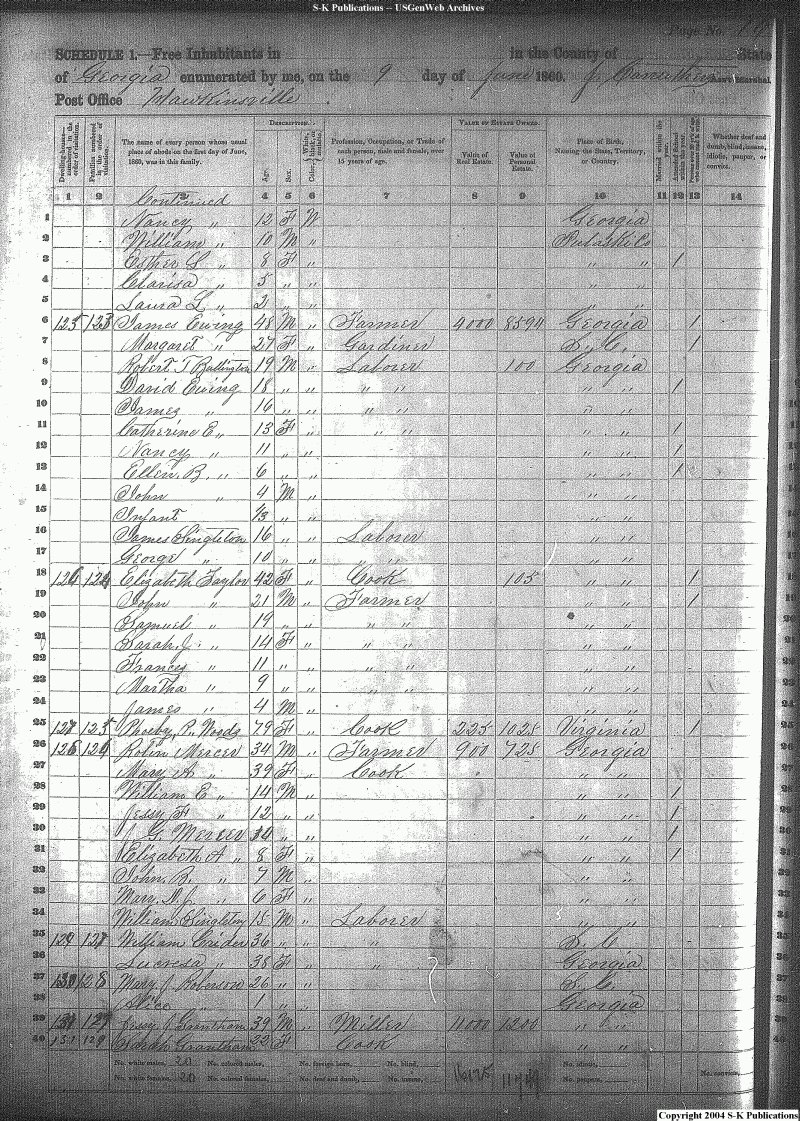 S-K Publications -- USGenWeb Archives
Page No.
SCHEDULE 1.—Free Inhabitants in in the County of State
of Georgia enumerated by me, on the 9 day of June 1860. J. Carruthers Ass't Marshal.
Post Office Hawkinsville
Dwelling-houses numbered in the order of visitation. Families numbered in the order of visitation. The name of every person whose usual place of abode on the first day of June, 1860, was in this family. DESCRIPTION. Age. Sex. Color, White, black, or mulatto. Profession, Occupation, or Trade of each person, male and female, over 15 years of age. VALUE OF ESTATE OWNED. Value of Real Estate. Value of Personal Estate. Place of Birth, Naming the State, Territory, or Country. Married within the year. Attended School within the year. Whether deaf and dumb, blind, insane, idiotic, pauper, or convict.
1 2 3 4 5 6 7 8 9 10 11 12 13 14
Continued
1 Nancy " 12 F W Georgia
2 William " 10 M " Pulaski Co
3 Esther L " 8 F " " " /
4 Clarisa " 5 " " " "
5 Laura L " 2 " " " "
6 125 123 James Ewing 48 M " Farmer 4000 8594 Georgia /
7 Margaret " 27 F " Gardiner S. C. /
8 Robert T Bullington 19 M " Laborer 100 Georgia
9 David Ewing 18 " " " " " " /
10 James " 16 " " " " " "
11 Catherine E " 13 F " " " " " /
12 Nancy " 11 " " " " /
13 Ellen B. " 6 " " " " /
14 John " 4 M " " "
15 Infant 1/3 " " " "
16 James Singleton 16 " " Laborer " "
17 George " 10 " " " "
18 126 124 Elizabeth Taylor 42 F " Cook 105 " " /
19 John " 21 M " Farmer " " /
20 Samuel " 19 " " " " " "
21 Sarah J. " 14 F " " " " "
22 Frances " 11 " " " " " "
23 Martha " 9 " " " " " "
24 James " 4 M " " "
25 127 125 Phoeby P. Woods 79 F " Cook 225 1025 Virginia /
26 128 126 Robin Mercer 34 M " Farmer 900 725 Georgia
27 Mary A " 39 F " Cook " "
28 William E " 14 M " " " /
29 Jessy F " 12 " " " " /
30 J G Mercer " " " " /
31 Elizabeth A " 8 F " " " /
32 John B " 7 M " " "
33 Mary D J " 6 F " " "
34 William Singleton 15 M " Laborer " "
35 129 127 William Crider 36 " " " S. C.
36 Lucresa " 38 F " " Georgia
37 130 128 Mary J Roberson 26 " " S. C.
38 Alice " 1 " " Georgia
39 131 129 Jessy J Grantham 39 M " Miller 11000 1200 " "
40 131 129 Sarah Grantham 22 F Cook " "
No. white males, 20 No. colored males, No. foreign born, No. blind, 16125 No. idiotic,
No. white females, 20 No. colored females, No. deaf and dumb, No. insane, No. paupers, No. convicts,
Copyright 2004 S-K Publications